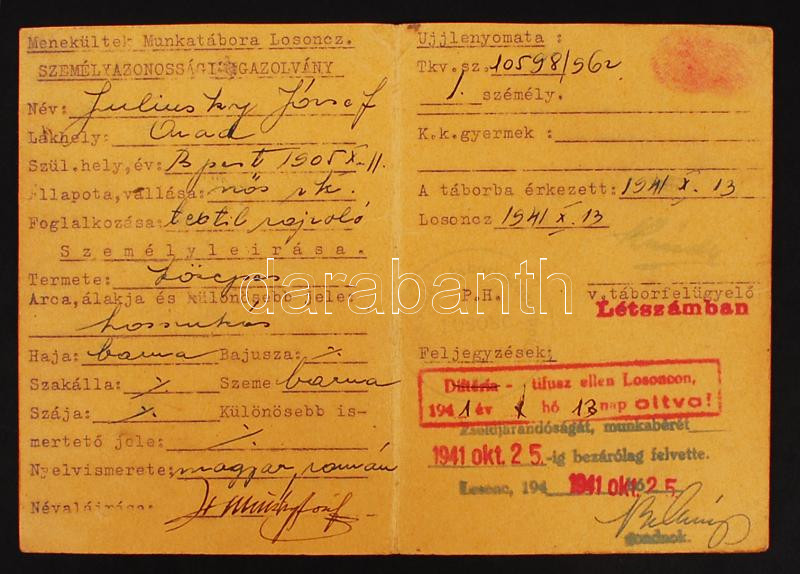 Menekültek Munkatábora Losoncz.
SZEMÉLYAZONOSSÁGI IGAZOLVÁNY
Név: Juliusky József
Lakhely: Arad
Szül.hely,év: Bpest 1905 X. 11.
Állapota,vallása: nős rk.
Foglalkozása: textil rajzoló
Személyleirása.
Termete: közepes
Arca,alakja és különösebb jele:
hosszukás
Haja: barna Bajusza: ·/.
Szakálla: ·/. Szeme: barna
Szája: ·/. Különösebb is-
mertető jele: ·/.
Nyelvismerete: magyar, román
Névaláirása:
Ujjlenyomata :
Tkv.sz. 10598/962
1 személy.
K.k.gyermek :
A táborba érkezett: 1941 X. 13
Losoncz 1941 X. 13
P.H.
v.táborfelügyelő
Létszámban
Feljegyzések:
Diftéria - tifusz ellen Losoncon,
1941 év X hó 13 nap oltva!
Zsoldjárandóságát, munkabérét
1941 okt. 25.-ig bezárólag felvette.
Losonc, 194 1941 okt. 25.
gondnok.
darabanth.com